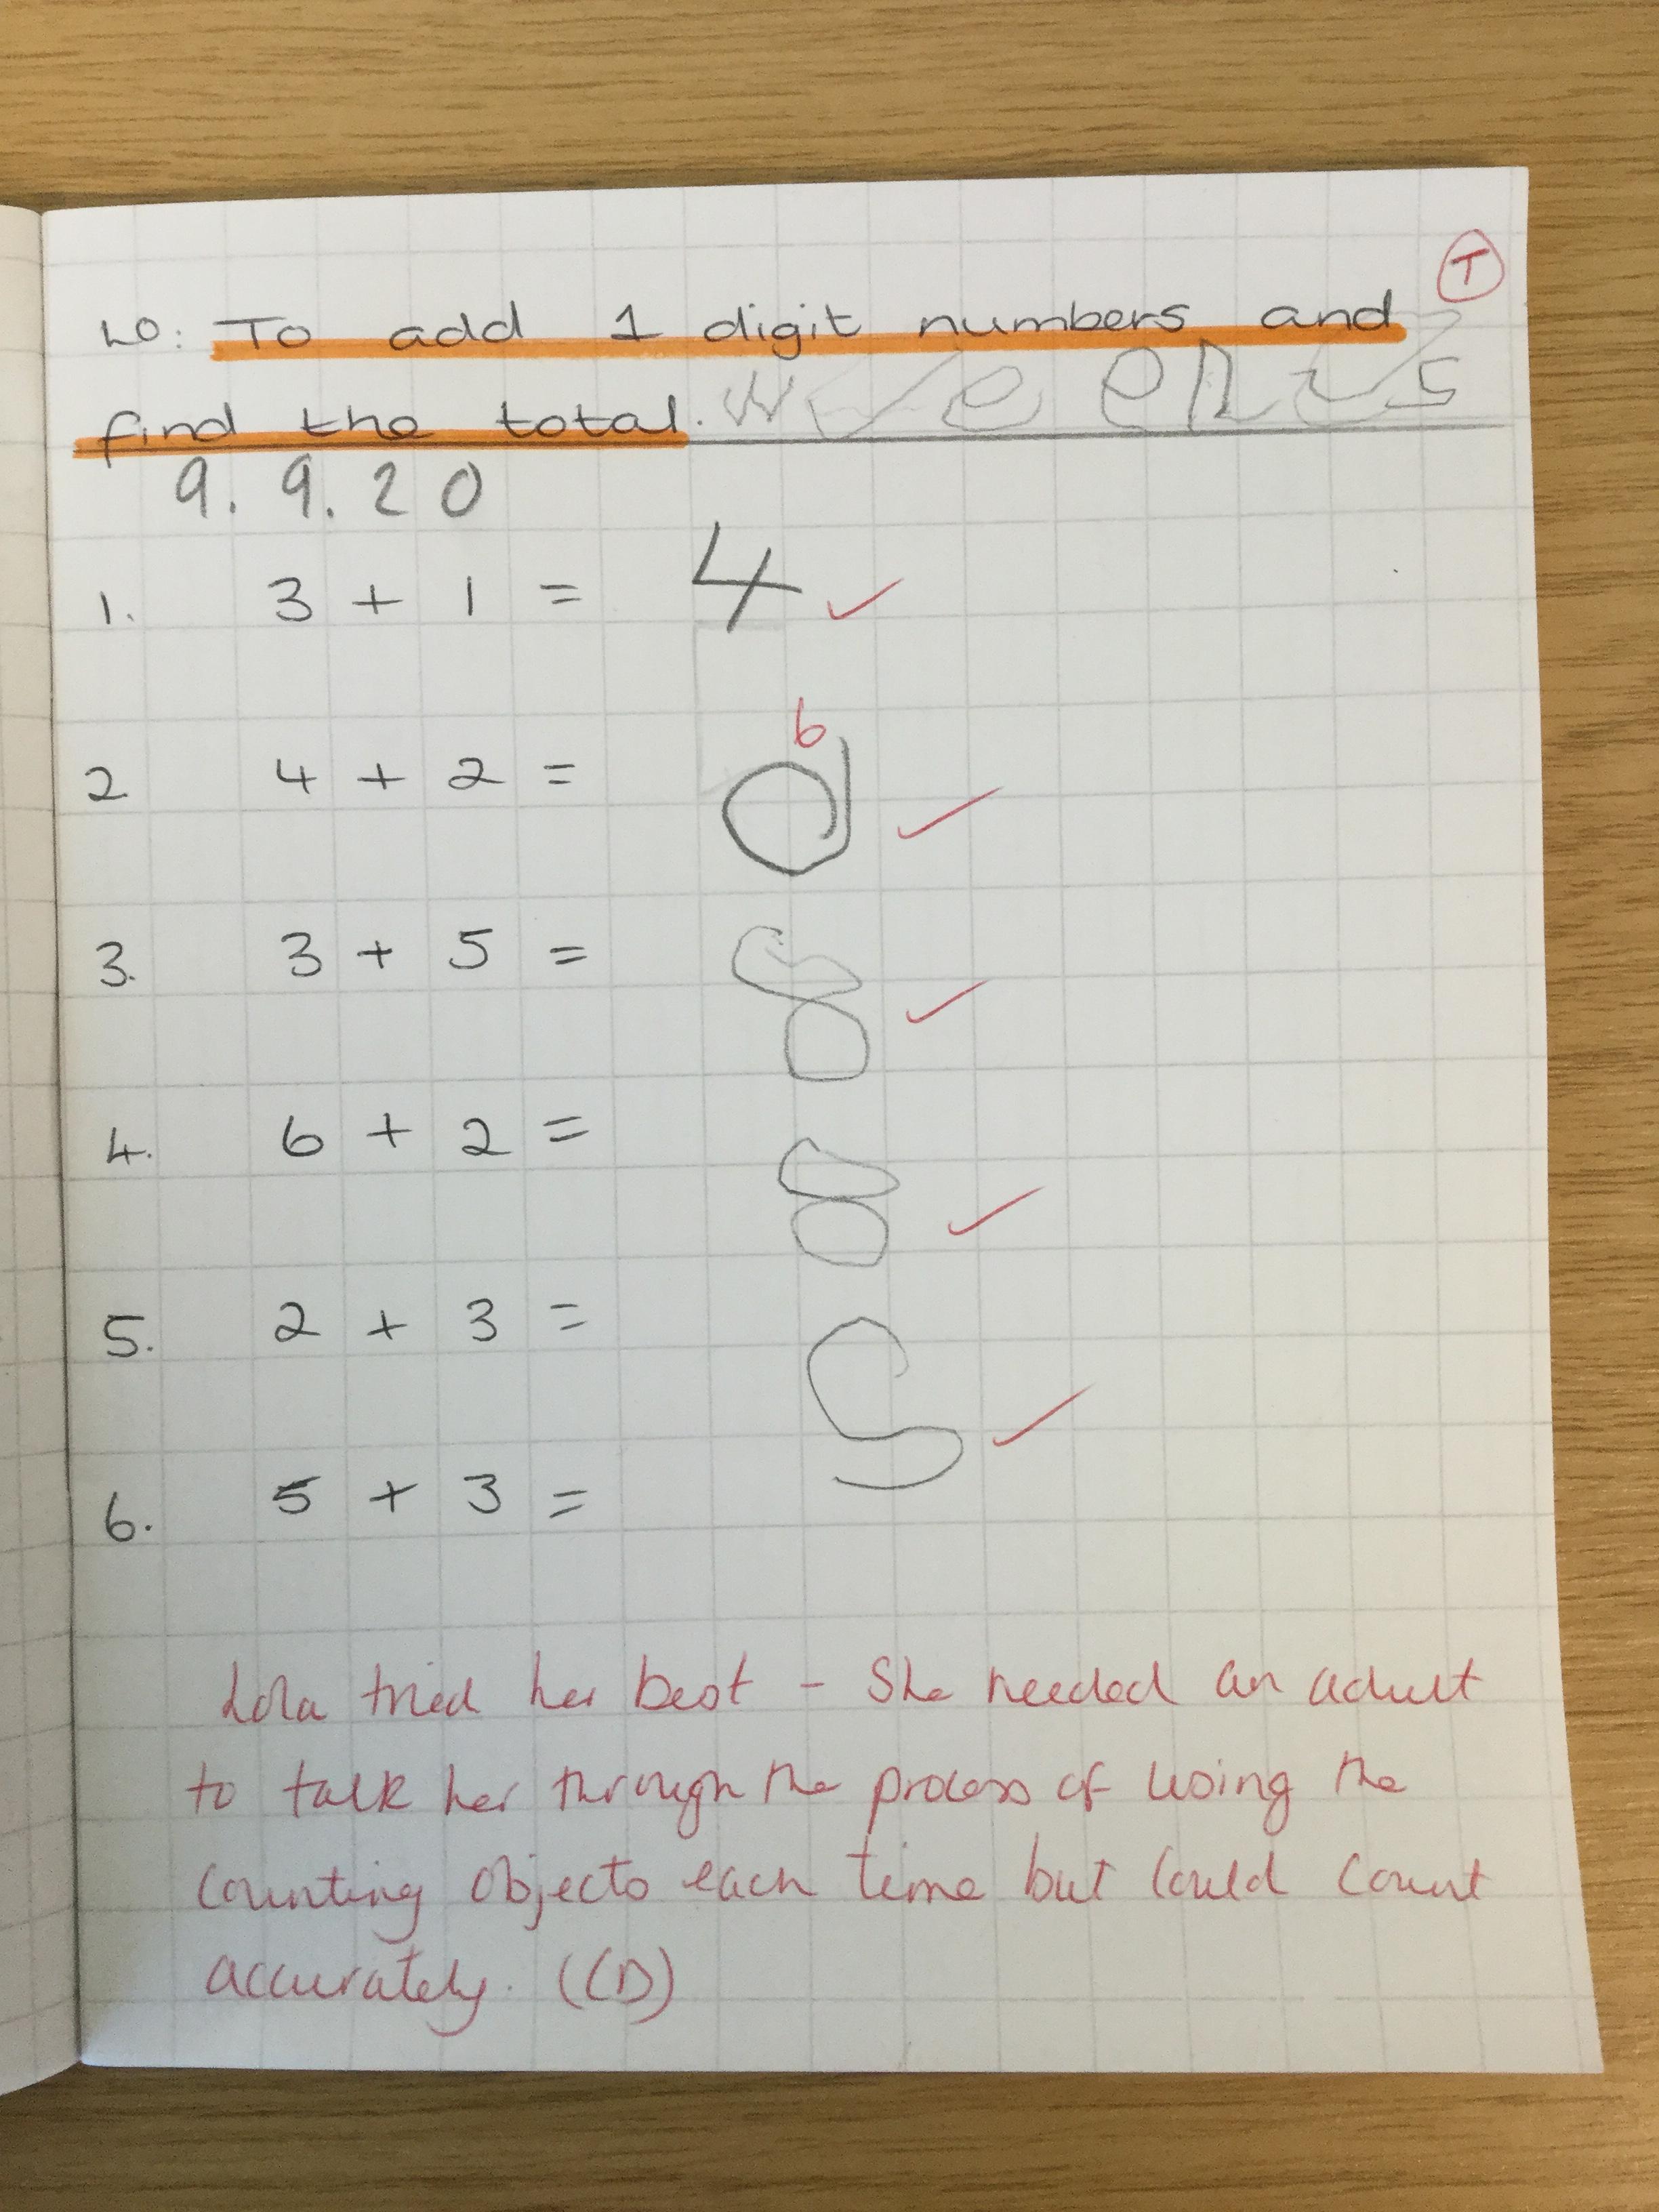 T
LO: To add 1 digit numbers and
find the total.
9.9.20
1. 3 + 1 = 4 ✓
6
2 4 + 2 = 6 ✓
3. 3 + 5 = 8 ✓
4. 6 + 2 = 8 ✓
5. 2 + 3 = 5 ✓
6. 5 + 3 =
Lola tried her best - She needed an adult
to talk her through the process of using the
counting objects each time but could count
accurately. (CD)